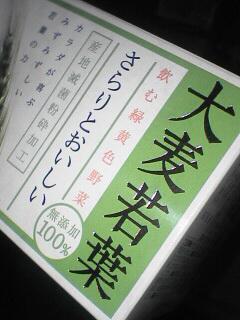 大麦若葉
飲む緑黄色野菜
さらりとおいしい
産地滅菌粉砕加工
カラダが喜ぶ
みずみずしい
若葉の力
無添加
100%